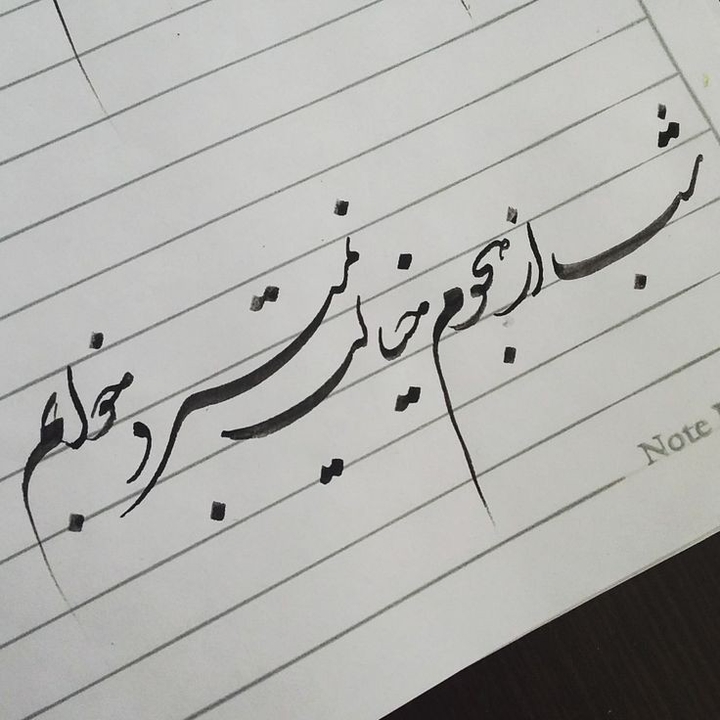 شب از هجوم خیالت نمیبرد خوابم
Note